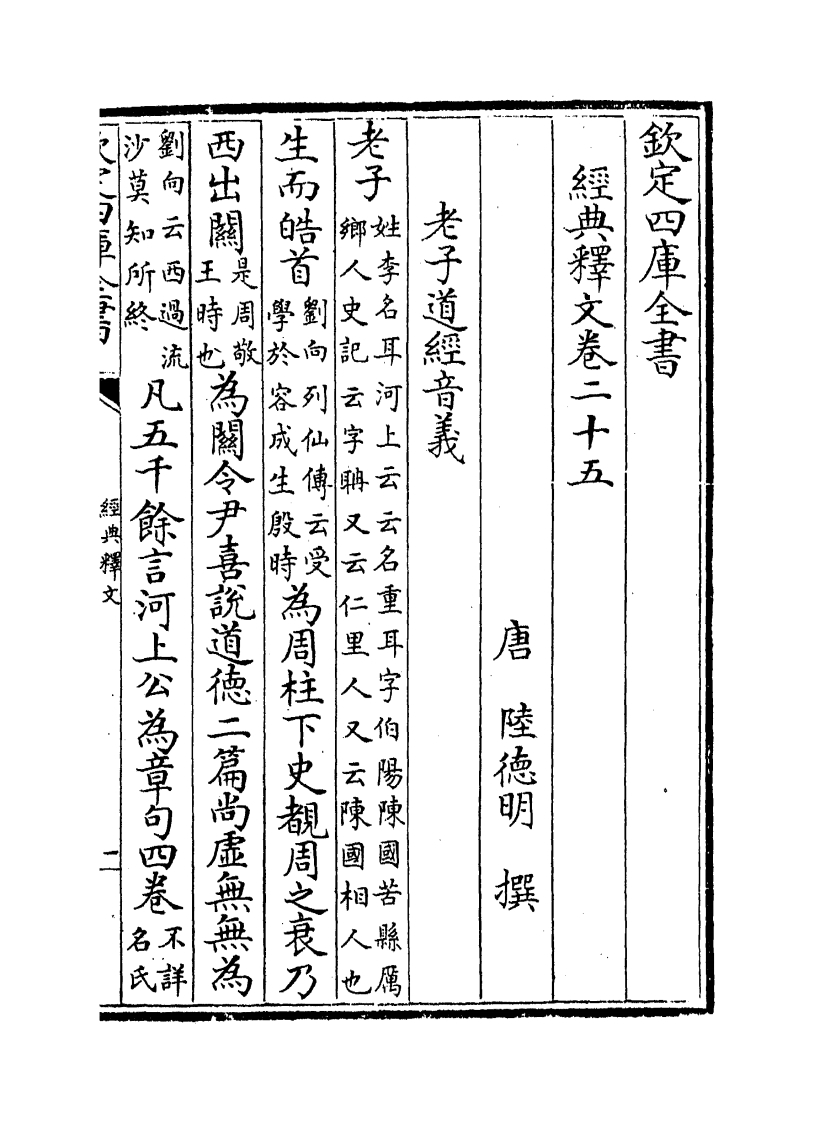 欽定四庫全書
經典釋文卷二十五
唐 陸德明 撰
老子道經音義
老子姓李名耳河上云云名重耳字伯陽陳國苦縣厲鄉人史記云字聃又云仁里人又云陳國相人也
生而皓首劉向列仙傳云受學於容成生殷時為周柱下史覩周之衰乃
西出關是周敬王時也為關令尹喜説道德二篇尚虛無無為
劉向云西過流沙莫知所終凡五千餘言河上公為章句四卷不詳名氏
欽定四庫全書
經典釋文
二